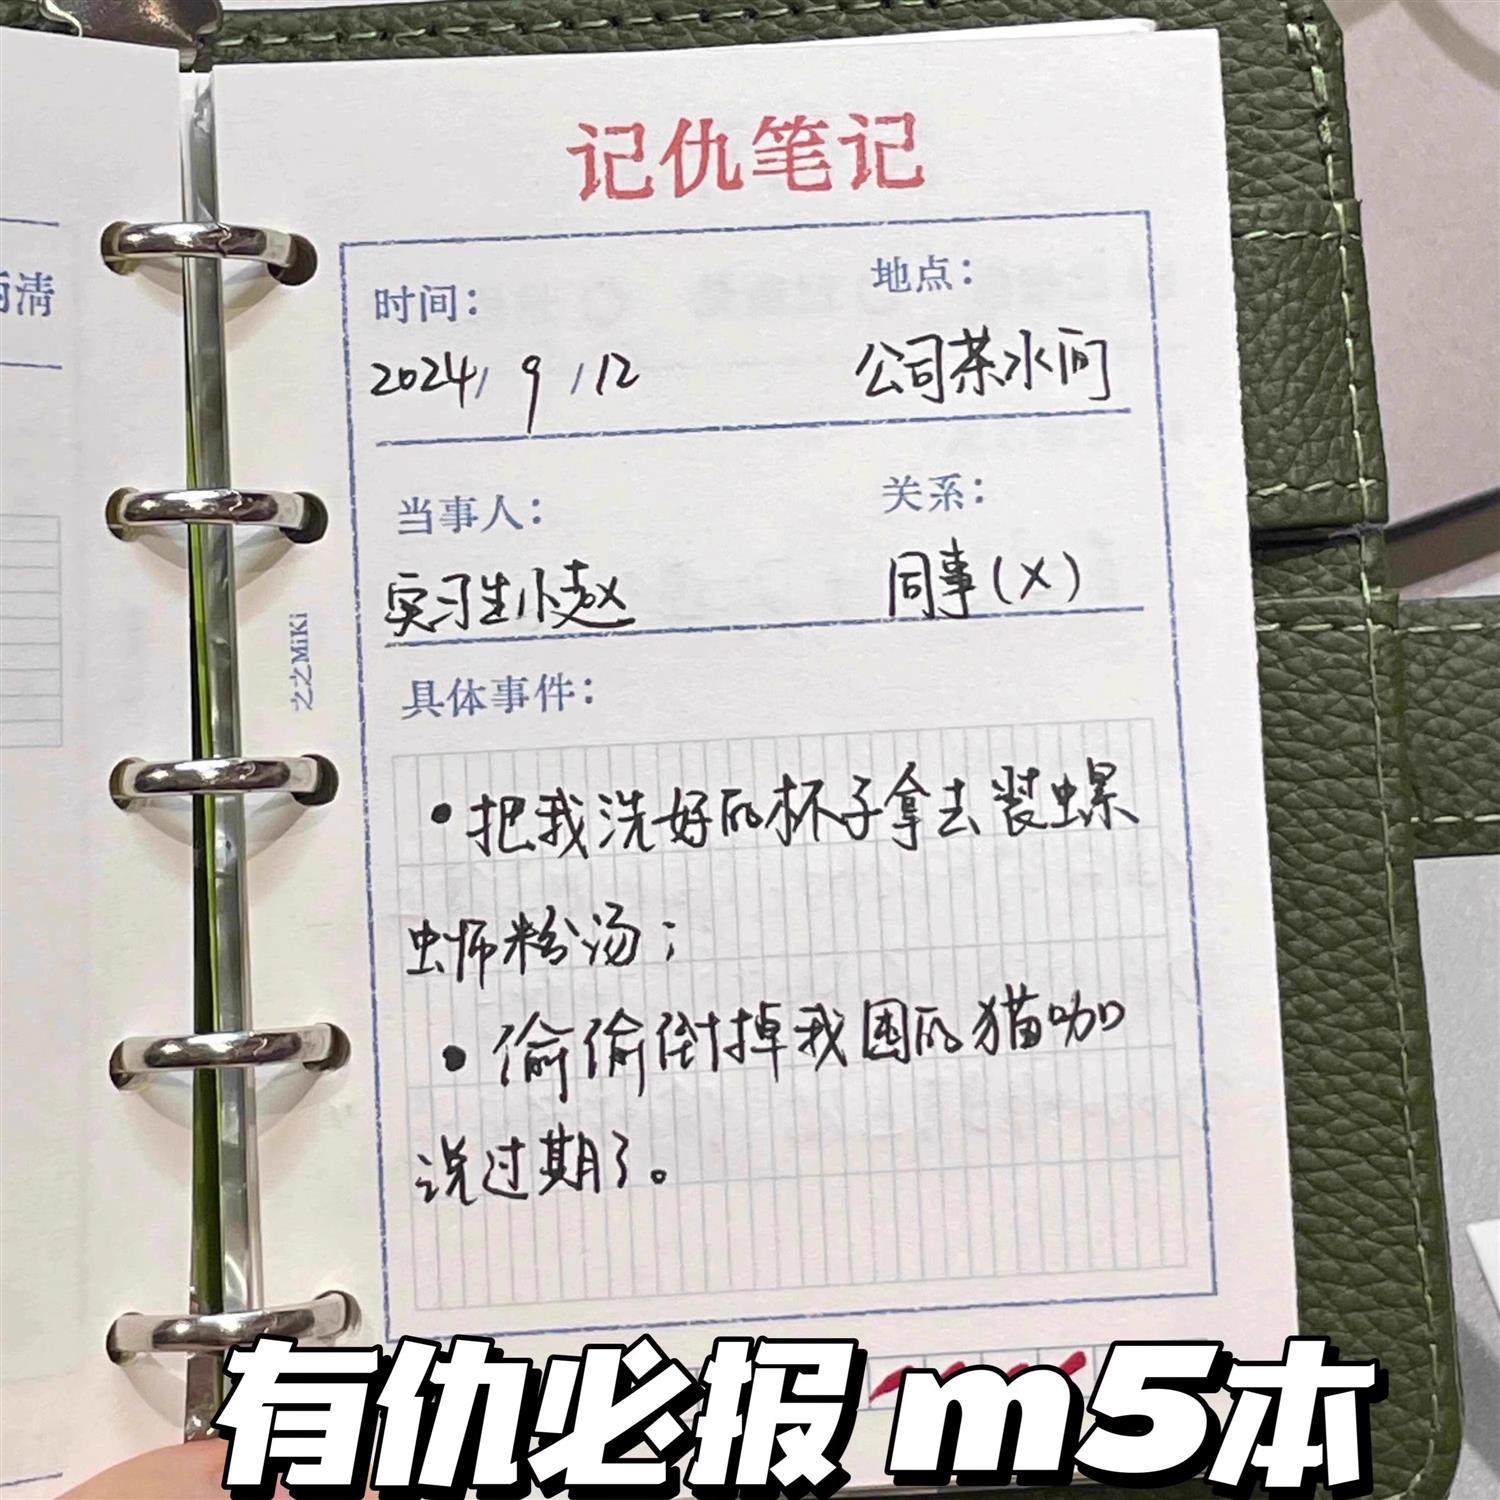 记仇笔记
时间：
地点：
2024/9/12
公司茶水间
当事人：
关系：
实习生小赵
同事(×)
具体事件：
·把我洗好的杯子拿去装螺
蛳粉汤；
·偷偷倒掉我囤的猫咖
说过期了。
之之MiKi
清
有仇必报 m5本